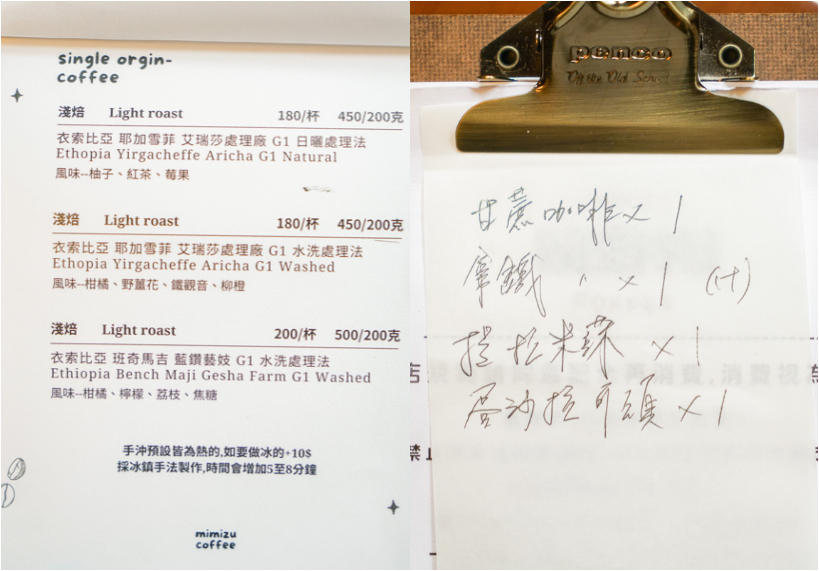 single orgin-
coffee
淺焙 Light roast 180/杯 450/200克
衣索比亞 耶加雪菲 艾瑞莎處理廠 G1 日曬處理法
Ethopia Yirgacheffe Aricha G1 Natural
風味--柚子、紅茶、莓果
淺焙 Light roast 180/杯 450/200克
衣索比亞 耶加雪菲 艾瑞莎處理廠 G1 水洗處理法
Ethopia Yirgacheffe Aricha G1 Washed
風味--柑橘、野薑花、鐵觀音、柳橙
淺焙 Light roast 200/杯 500/200克
衣索比亞 班奇馬吉 藍鑽藝妓 G1 水洗處理法
Ethiopia Bench Maji Gesha Farm G1 Washed
風味--柑橘、檸檬、荔枝、焦糖
手沖預設皆為熱的,如要做冰的+10$
採冰鎮手法製作,時間會增加5至8分鐘
mimizu
coffee
penco
Off the Old School
甘蔗咖啡 x 1
拿鐵 x 1
提拉米蘇 x 1
沙拉可頌 x 1
店
禁止